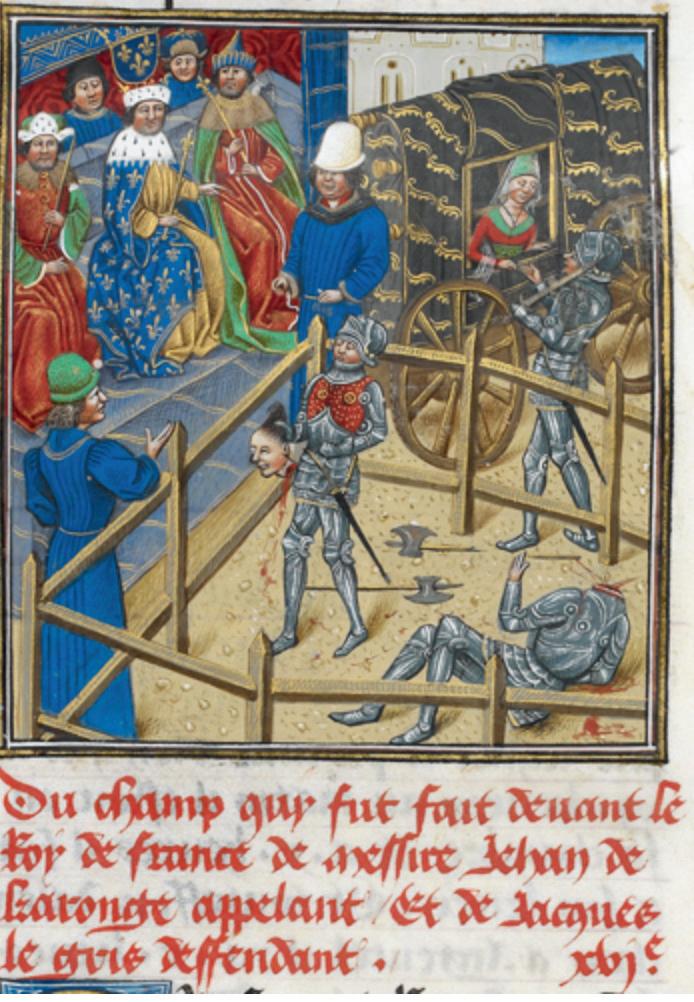 Du champ quy fut fait deuant le
Roy de france de messire Jehan de
karonge appelant / Et de Jacques
le gris deffendant . xvjᵉ.